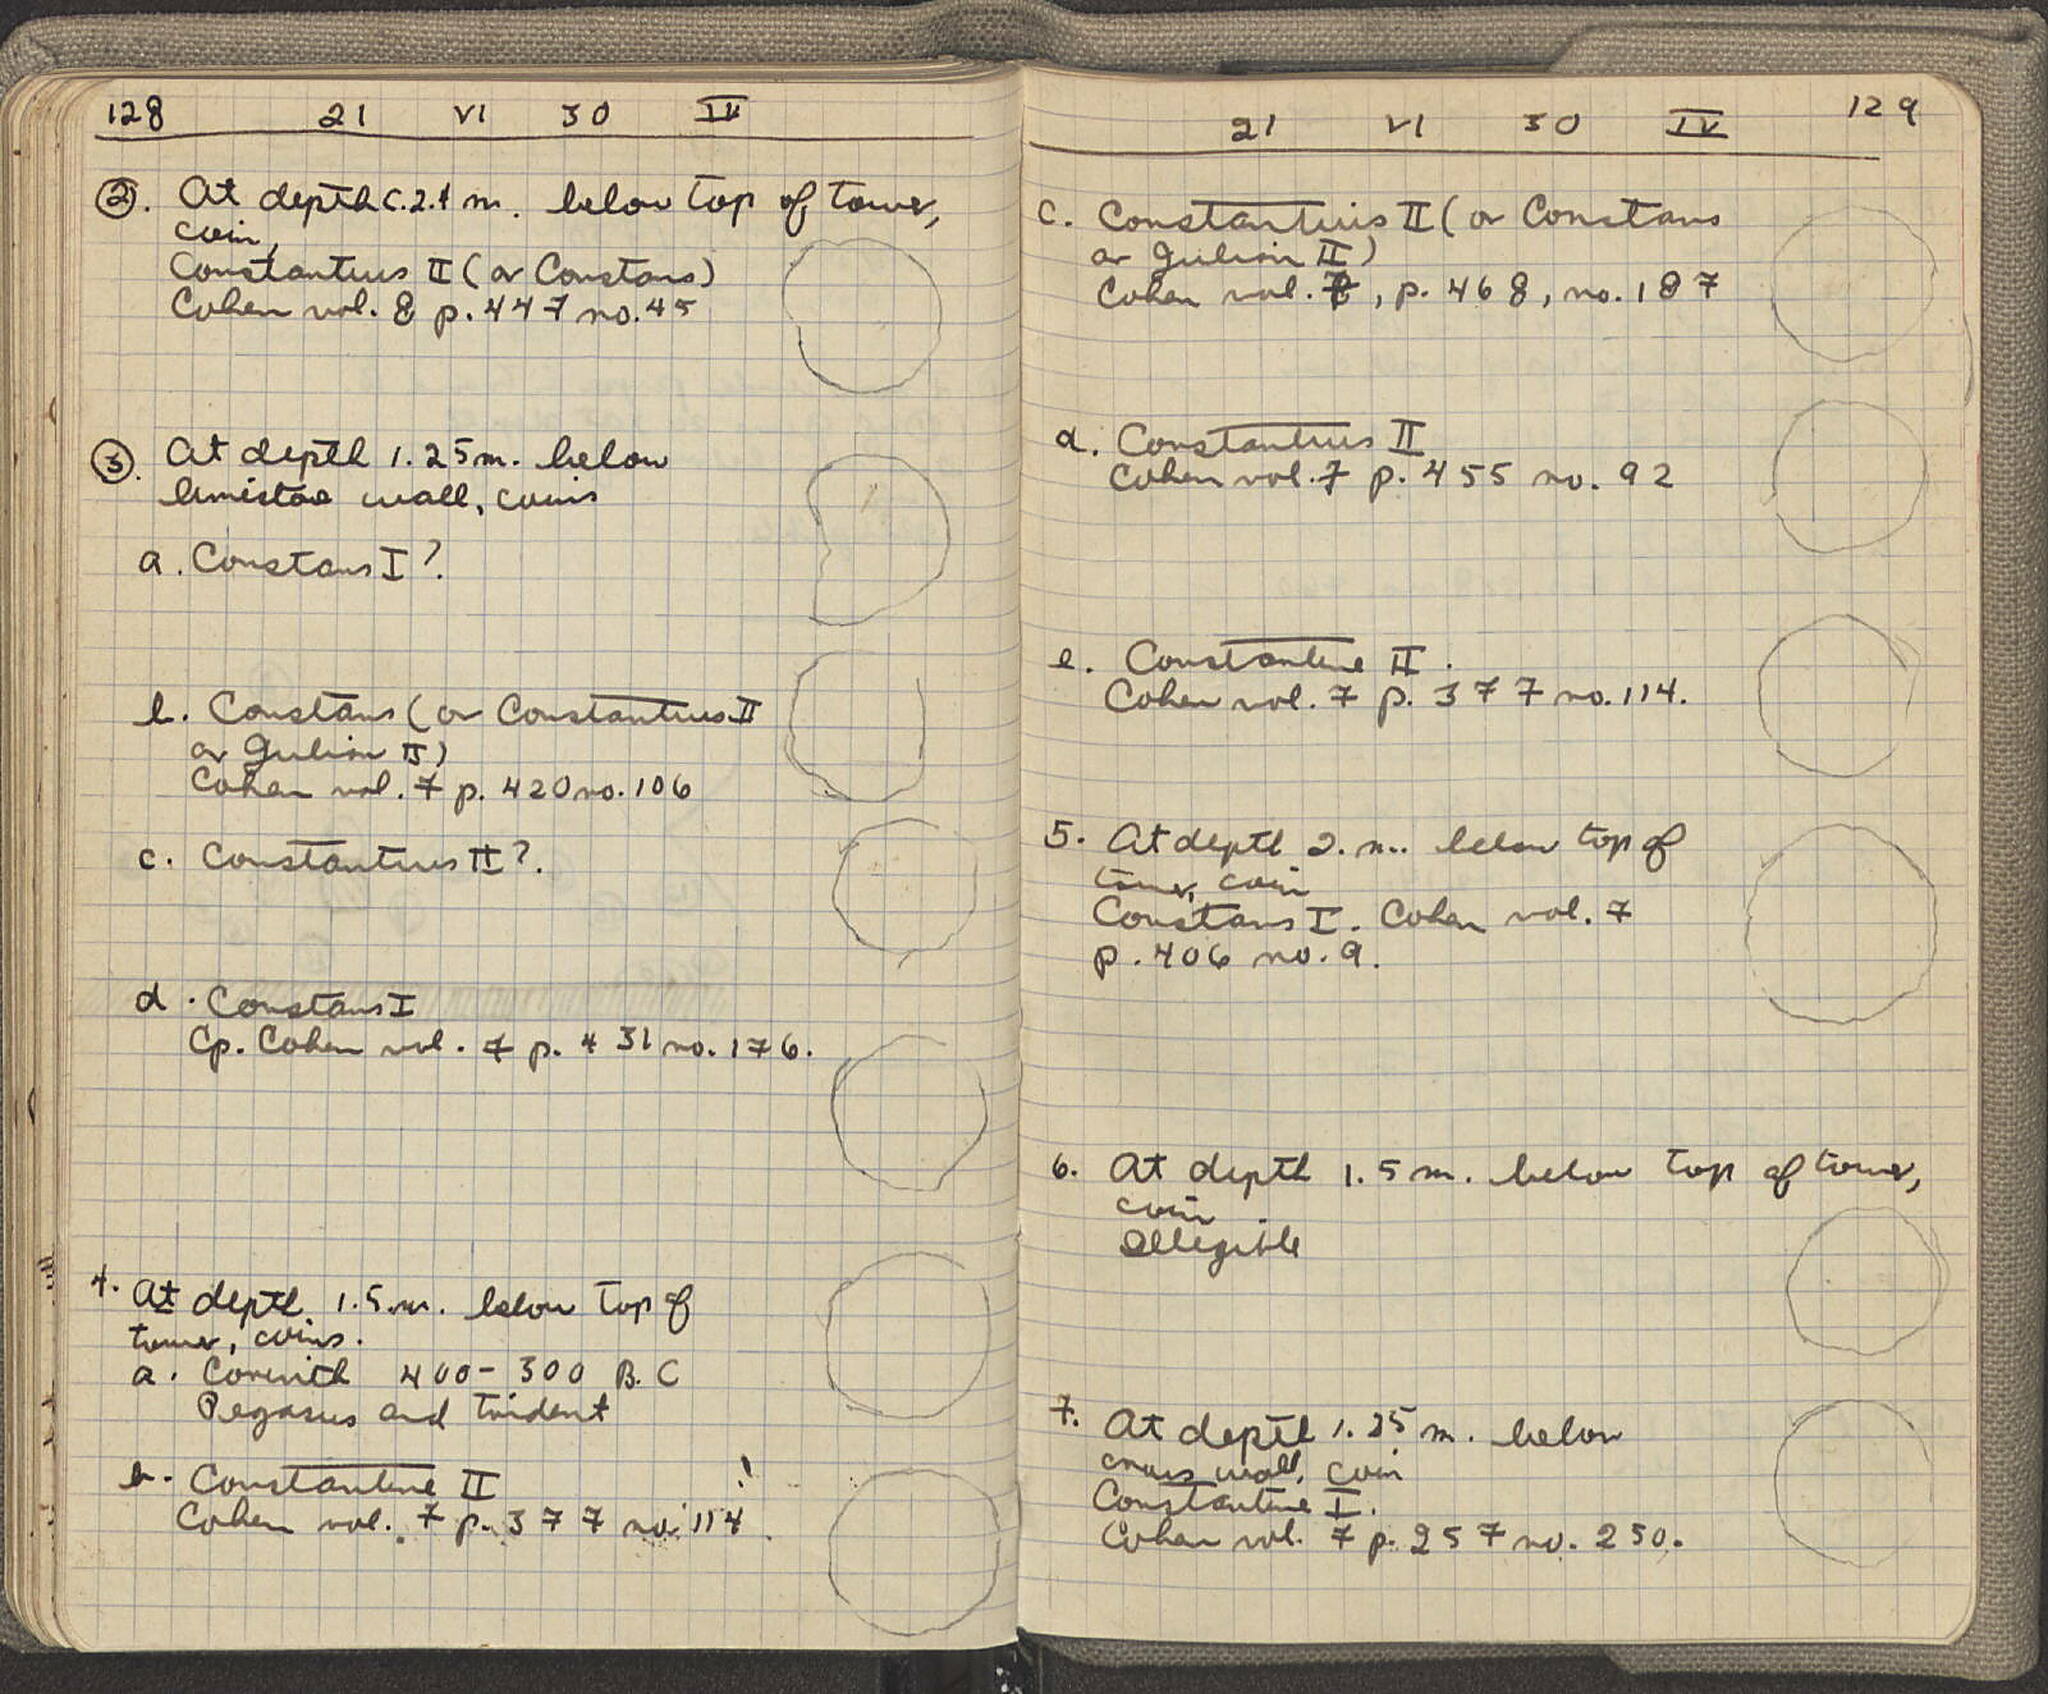 128 21 VI 30 IV
②. At depth c. 2.4 m. below top of tower,
coin,
Constantius II (or Constans)
Cohen vol. 8 p. 447 no. 45
③. At depth 1.25 m. below
limestone wall, coins
a. Constans I?.
b. Constans (or Constantius II
or Julian II)
Cohen vol. 7 p. 420 no. 106
c. Constantius II?.
d. Constans I
Cp. Cohen vol. 7 p. 431 no. 176.
4. At depth 1.5 m. below top of
tower, coins.
a. Corinth 400-300 B.C
Pegasus and trident
b. Constantine II
Cohen vol. 7 p. 377 no. 114.
21 VI 30 IV 129
c. Constantius II (or Constans
or Julian II)
Cohen vol. 7, p. 468, no. 187
d. Constantius II
Cohen vol. 7 p. 455 no. 92
e. Constantine II.
Cohen vol. 7 p. 377 no. 114.
5. At depth 2. m. below top of
tower, coin
Constans I. Cohen vol. 7
p. 406 no. 9.
6. At depth 1.5 m. below top of tower,
coin
Illegible
7. At depth 1.25 m. below
cross wall, coin
Constantine I.
Cohen vol. 7 p. 257 no. 250.